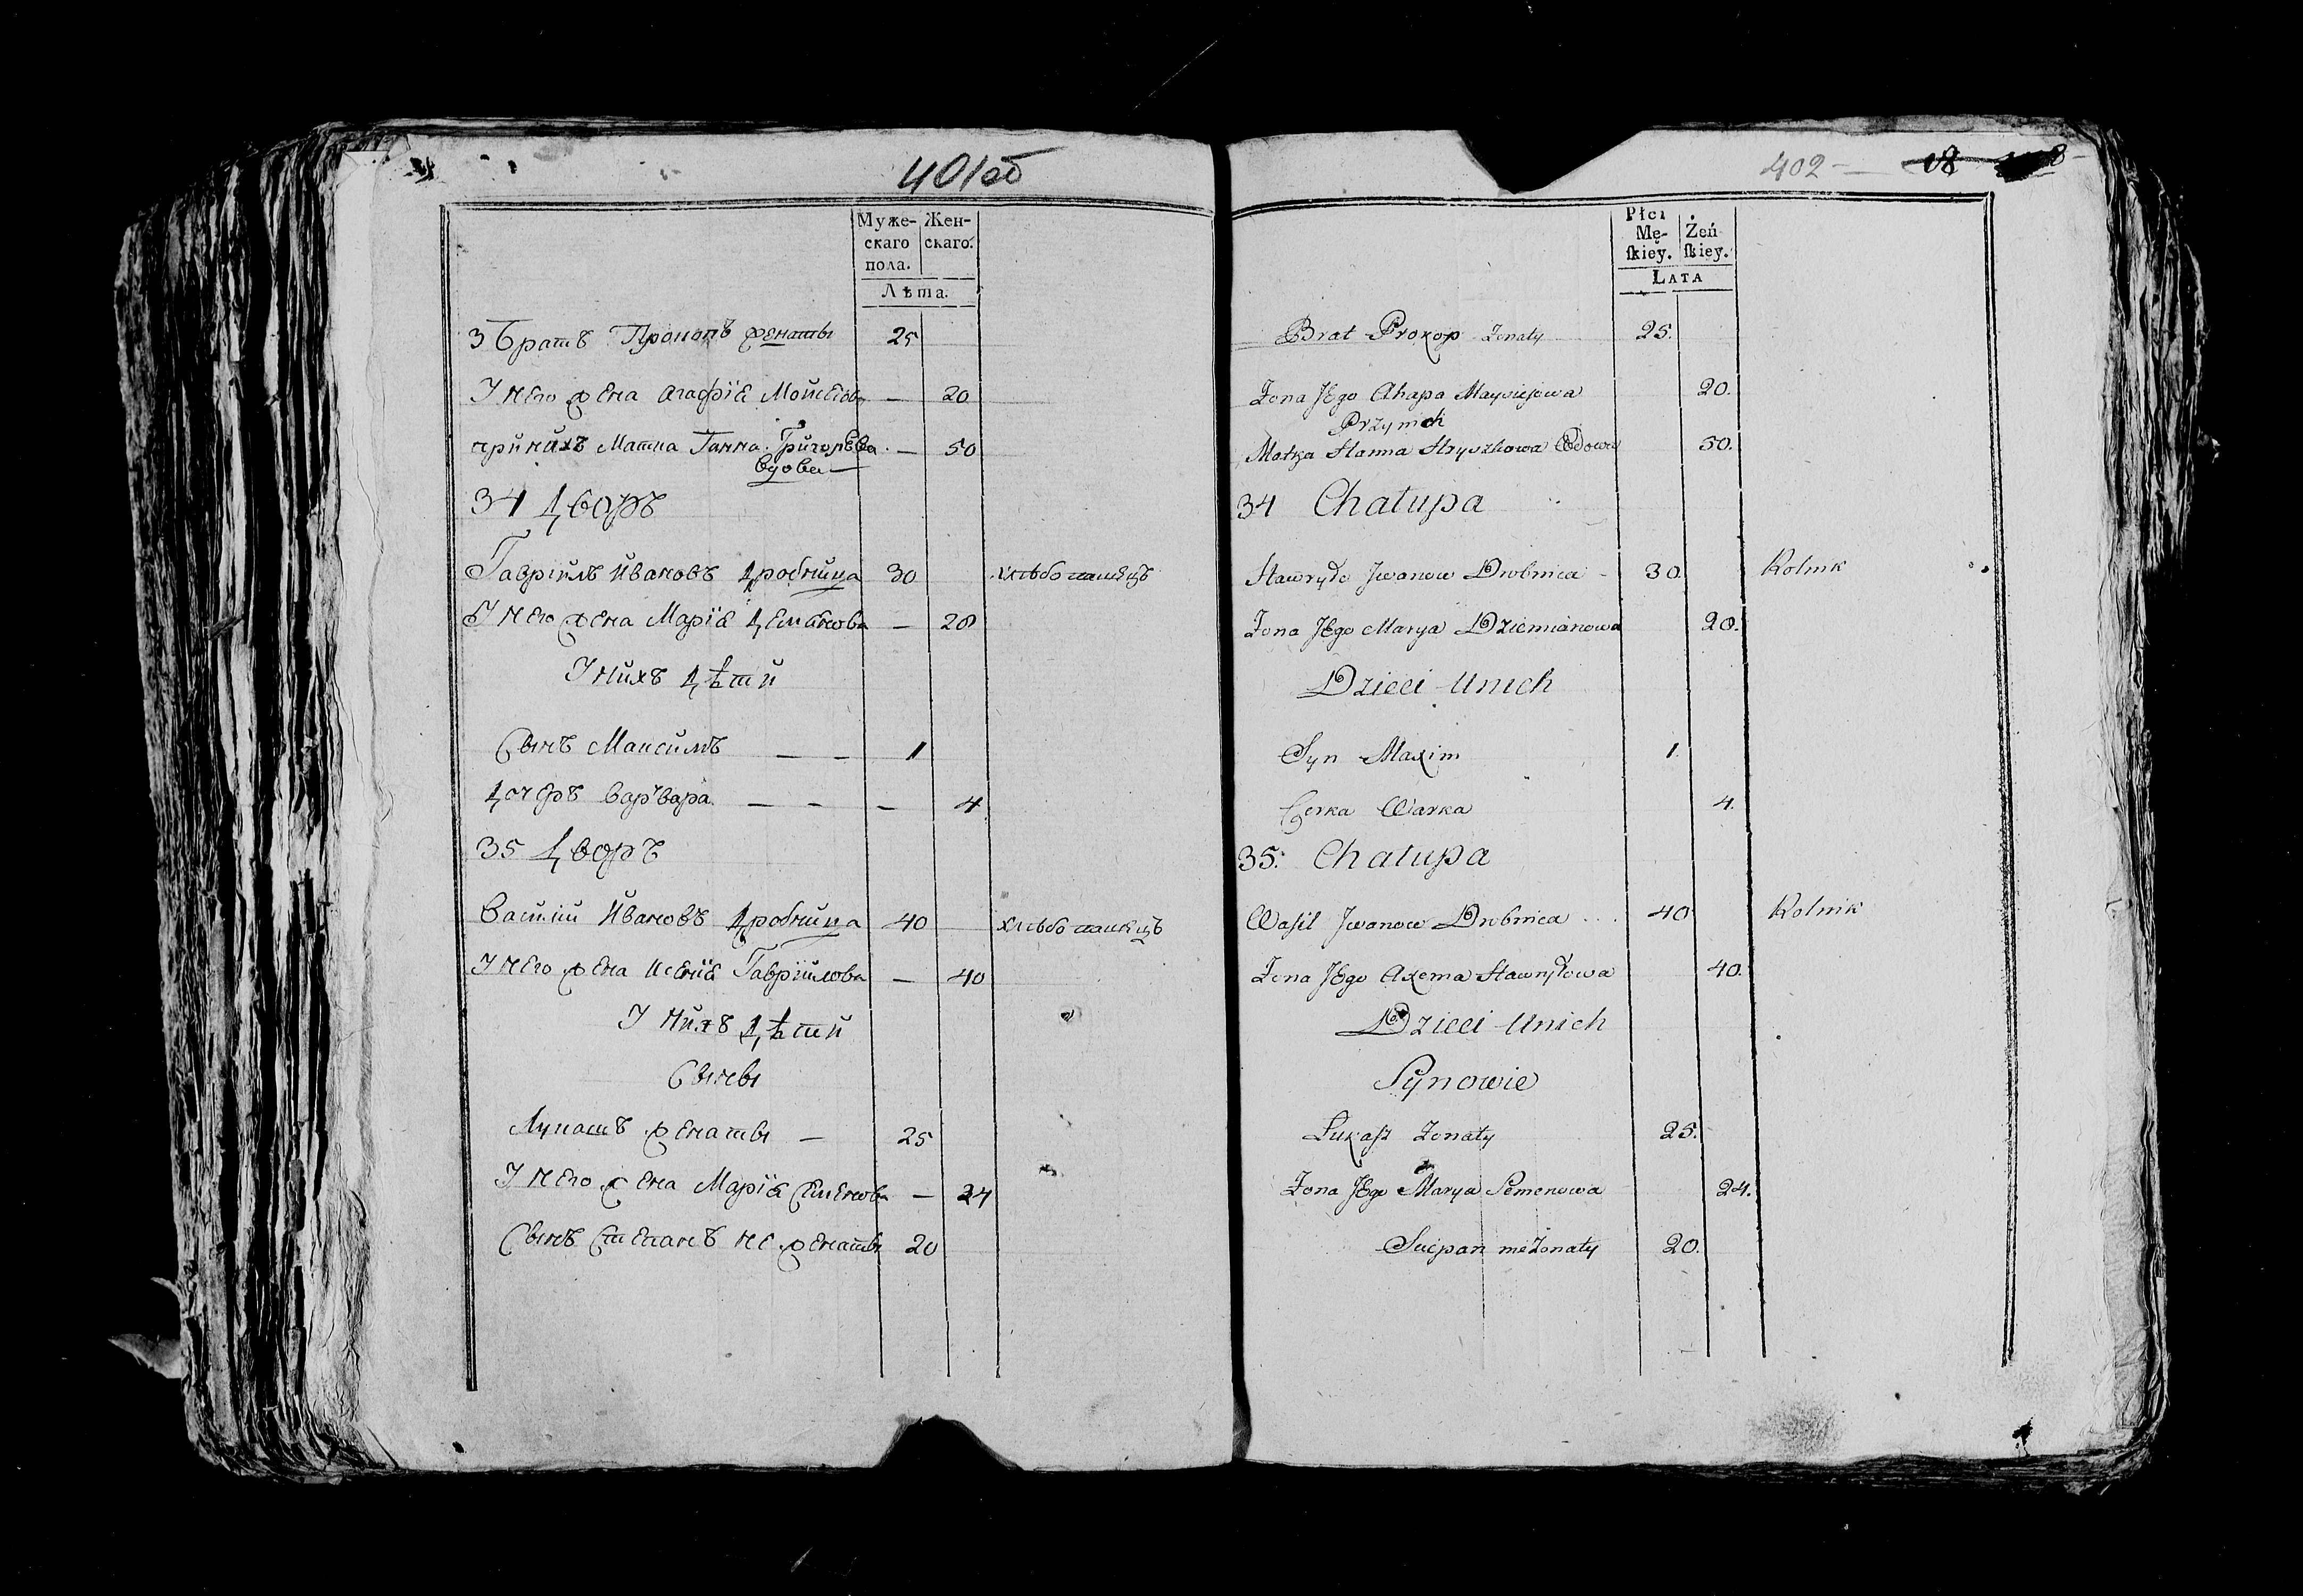 401об
Муже- Жен-
скаго скаго.
пола.
Лѣта.
3 Братъ Прокопъ женаты 25
У него жена Агафія Мойсеова — 20
при нихъ Матка Ганна Григорьева — 50
вдова —
34 Дворъ
Гаврiйлъ Ивановъ Дробница 30 хлѣбопашецъ
У него жена Марія Демянова — 20
У нихъ дѣти
Сынъ Максимъ — — 1
Дочеръ Варвара — — — 4
35 Дворъ
Василій Ивановъ Дробница 40 хлѣбопашецъ
У него жена Ксенія Гавріилова — 40
У нихъ дѣти
Сыны
Лукашъ женаты — 25
У него жена Марія Семенова — 24
Сынъ Степанъ не женаты 20
402 —
Płci
Mę- Żeń
ſkiey. ſkiey.
LATA
Brat Prokop Zonaty 25.
Zona Jego Ahapa 20.
Przy nich
Matka Hanna Hryszkowa Wdowa 50.
34 Chałupa
Hawryło Jwanow Drobnica 30. Rolnik
Zona Jego Marya Dziemianowa 20.
Dzieci U nich
Syn Maxim 1.
Corka Warka 4.
35. Chałupa
Waſil Jwanow Drobnica 40 Rolnik
Zona Jego Axenia Hawryłowa 40.
Dzieci U nich
Synowie
Łukaſz Zonaty 25.
Zona Jego Marya Semenowa 24.
Sciepan nieżonaty 20.